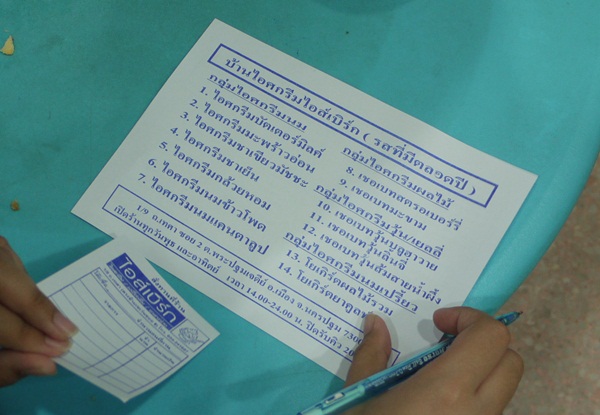 บ้านไอศกรีมไอส์เบิร์ก ( รสที่มีตลอดปี )
กลุ่มไอศกรีมนม
1. ไอศกรีมบัตเตอร์มิลค์
2. ไอศกรีมมะพร้าวอ่อน
3. ไอศกรีมชาเขียวมัชชะ
4. ไอศกรีมชาเย็น
5. ไอศกรีมกล้วยหอม
6. ไอศกรีมนมข้าวโพด
7. ไอศกรีมนมแคนตาลูป
กลุ่มไอศกรีมผลไม้
8. เชอเบทสตรอเบอร์รี่
9. เชอเบทมะขาม
กลุ่มไอศกรีมวุ้น/เยลลี่
10. เชอเบทวุ้นบลูฮาวาย
11. เชอเบทวุ้นลิ้นจี่
12. เชอเบทวุ้นส้มสายน้ำผึ้ง
กลุ่มไอศกรีมนมเปรี้ยว
13. โยเกิร์ตผลไม้รวม
14. โยเกิร์ตยาคูลท์
1/9 ถ.เทศา ซอย 2 ต.พระปฐมเจดีย์ อ.เมือง จ.นครปฐม 7300
เปิดร้านทุกวันพุธ และอาทิตย์ เวลา 14.00-24.00 น. ปิดรับคิว
ไอส์เบิร์ก